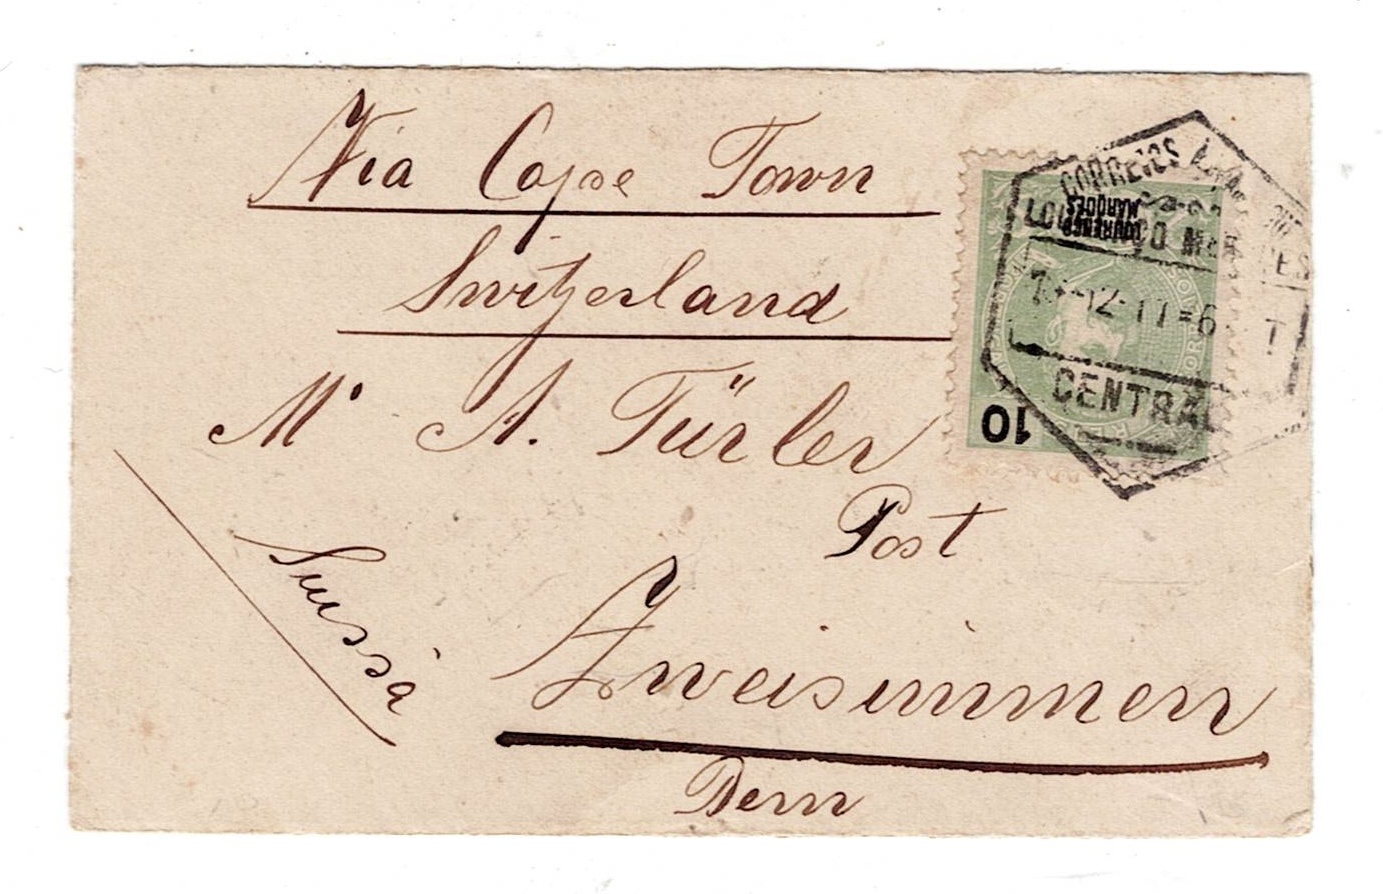 Via Cape Town
Switzerland
Mr A. Türler
Post
Zweisimmen
Bern
Suissa
CORREIOS
LOURENÇO MARQUES
-12-11=6 T
CENTRAL
LOURENÇO
MARQUES
10